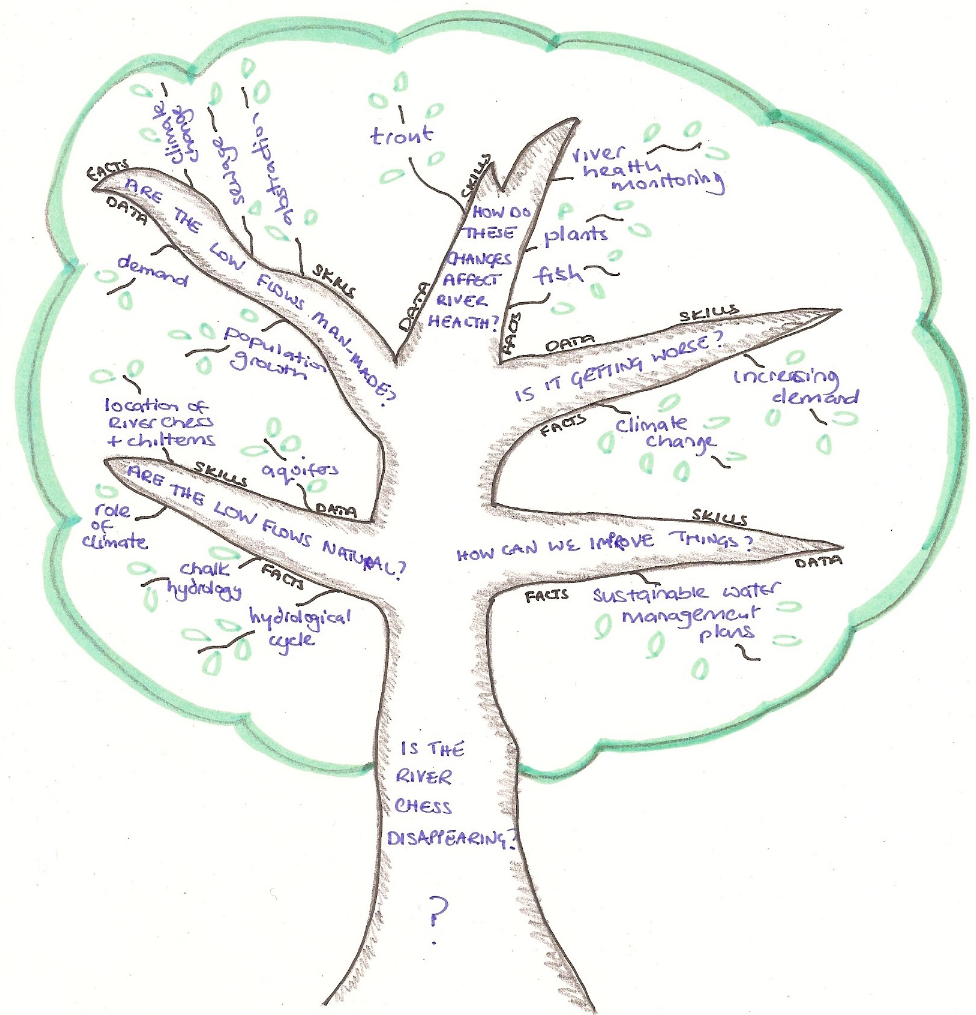 climate
change
sewage
abstraction
FACTS
ARE THE LOW FLOWS MAN-MADE?
DATA
SKILLS
demand
population
growth
trout
SKILLS
HOW DO
THESE
CHANGES
AFFECT
RIVER
HEALTH?
DATA
FACTS
river
health
monitoring
plants
fish
DATA
SKILLS
IS IT GETTING WORSE?
FACTS
climate
change
increasing
demand
location of
River Chess
+ chilterns
aquifers
SKILLS
DATA
ARE THE LOW FLOWS NATURAL?
FACTS
role
of
climate
chalk
hydrology
hydrological
cycle
SKILLS
HOW CAN WE IMPROVE THINGS?
DATA
FACTS
sustainable water
management
plans
IS THE
RIVER
CHESS
DISAPPEARING?
?